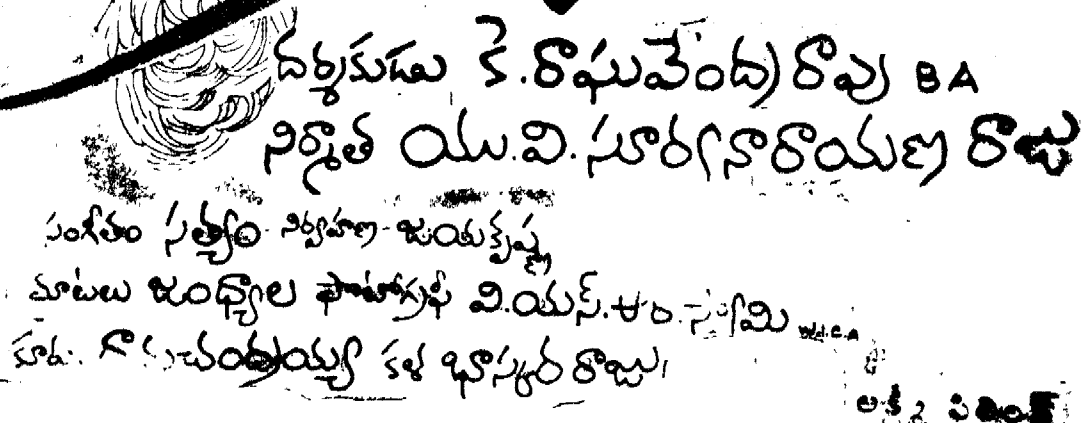 దర్శకుడు కె.రాఘవేంద్రరావు BA
నిర్మాత యు.వి.సూర్యనారాయణ రాజు
సంగీతం సత్యం నిర్వహణ-జయకృష్ణ
మాటలు జంధ్యాల ఫొటోగ్రఫీ వి.యస్.ఆర్.స్వామి W.I.C.A
కూర్పు: కళ భాస్కర రాజు